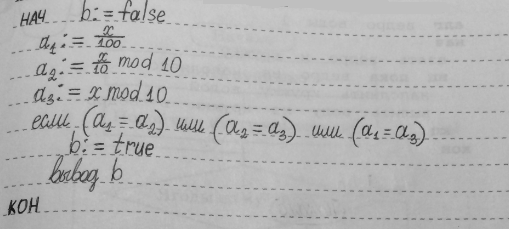 нач b:=false
a₁:= x/100
a₂:= x/10 mod 10
a₃:= x mod 10
если (a₁ = a₂) или (a₂ = a₃) или (a₁ = a₃)
b:= true
вывод b
кон